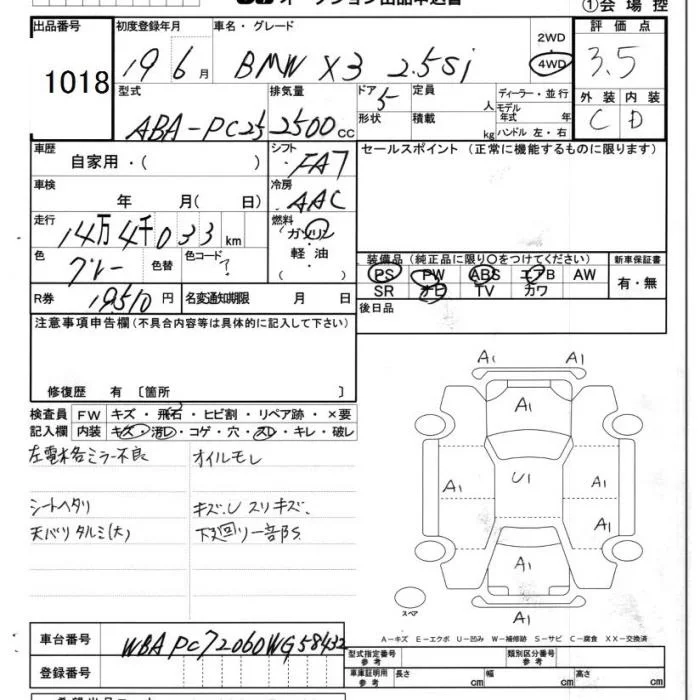 オークション出品申込書
①会場控
出品番号 初度登録年月 車名・グレード 評価点
1018 19 6月 BMW X3 2.5Si 2WD・4WD 3.5
型式 排気量 ドア 定員 ディーラー・並行 外装 内装
ABA-PC25 2500cc 5 人 モデル年式 年 C D
形状 積載 kg ハンドル 左・右
車歴 シフト セールスポイント (正常に機能するものに限ります)
自家用・( ) FA7
車検 冷房
年 月( 日) AAC
走行 燃料
14万4千033km ガソリン
色 色替 色コード 軽油
グレー ? ( )
装備品 (純正品に限り○をつけてください) 新車保証書
PS PW ABS エアB AW 有・無
SR ナビ TV カワ
R券 19510円 名変通知期限 月 日
後日品
注意事項申告欄(不具合内容等は具体的に記入して下さい)
修復歴 有 〔箇所 〕
検査員 FW キズ・飛石・ヒビ割・リペア跡・×要
記入欄 内装 キズ・汚レ・コゲ・穴・スレ・キレ・破レ
左電格ミラー不良 オイルモレ
シートヘタリ キズ.U スリキズ.
天バリタルミ(大) 下廻り一部S
A1 A1
A1
U1
A1 A1
A1
A1
A1
スペア
A-キズ E-エクボ U-凹み W-補修跡 S-サビ C-腐食 XX-交換済
車台番号 WBAPC72060WG58432
登録番号
型式指定番号 参考 類別区分番号 参考
車庫証明用 参考 長さ cm 幅 cm 高さ cm